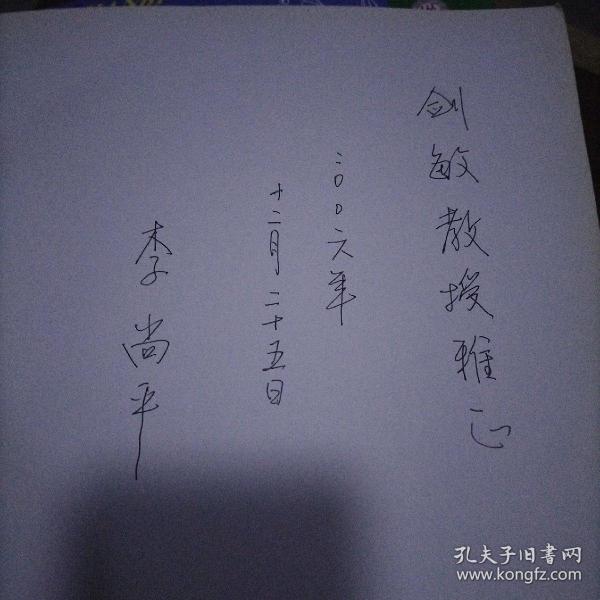 剑敏教授雅正
二〇〇六年
十二月二十五日
李尚平
孔夫子旧书网
www.kongfz.com